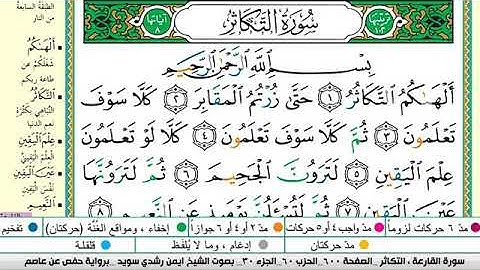 سُورَةُ التَّكَاثُرِ
ترتيبها ١٠٢
آياتها ٨
بِسْمِ اللَّهِ الرَّحْمَٰنِ الرَّحِيمِ
أَلْهَىٰكُمُ التَّكَاثُرُ ١ حَتَّىٰ زُرْتُمُ الْمَقَابِرَ ٢ كَلَّا سَوْفَ
تَعْلَمُونَ ٣ ثُمَّ كَلَّا سَوْفَ تَعْلَمُونَ ٤ كَلَّا لَوْ تَعْلَمُونَ
عِلْمَ الْيَقِينِ ٥ لَتَرَوُنَّ الْجَحِيمَ ٦ ثُمَّ لَتَرَوُنَّهَا
عَيْنَ الْيَقِينِ ٧ ثُمَّ لَتُسْأَلُنَّ يَوْمَئِذٍ عَنِ النَّعِيمِ ٨
الطبقة السابعة
من النار
أَلْهَىٰكُمُ
شَغَلَكُمْ عن
طاعة ربكم
التَّكَاثُرُ
التباهي بكثرة
نعم الدنيا
عِلْمَ الْيَقِينِ
العلم اليقيني
عَيْنَ الْيَقِينِ
نفس اليقين
النَّعِيمِ
مدّ ٦ حركات لزوماً
مدّ واجب ٤ أو ٥ حركات
مدّ ٢ أو ٤ أو ٦ جوازاً
إخفاء ، ومواقع الغُنَّة (حركتان)
تفخيم
مدّ حركتان
إدغام ، وما لا يُلفَظ
قلقلة
سورة القارعة ، التكاثر .. الصفحة ٦٠٠ الحزب ٦٠ الجزء ٣٠ .. بصوت الشيخ ايمن رشدي سويد .. برواية حفص عن عاصم